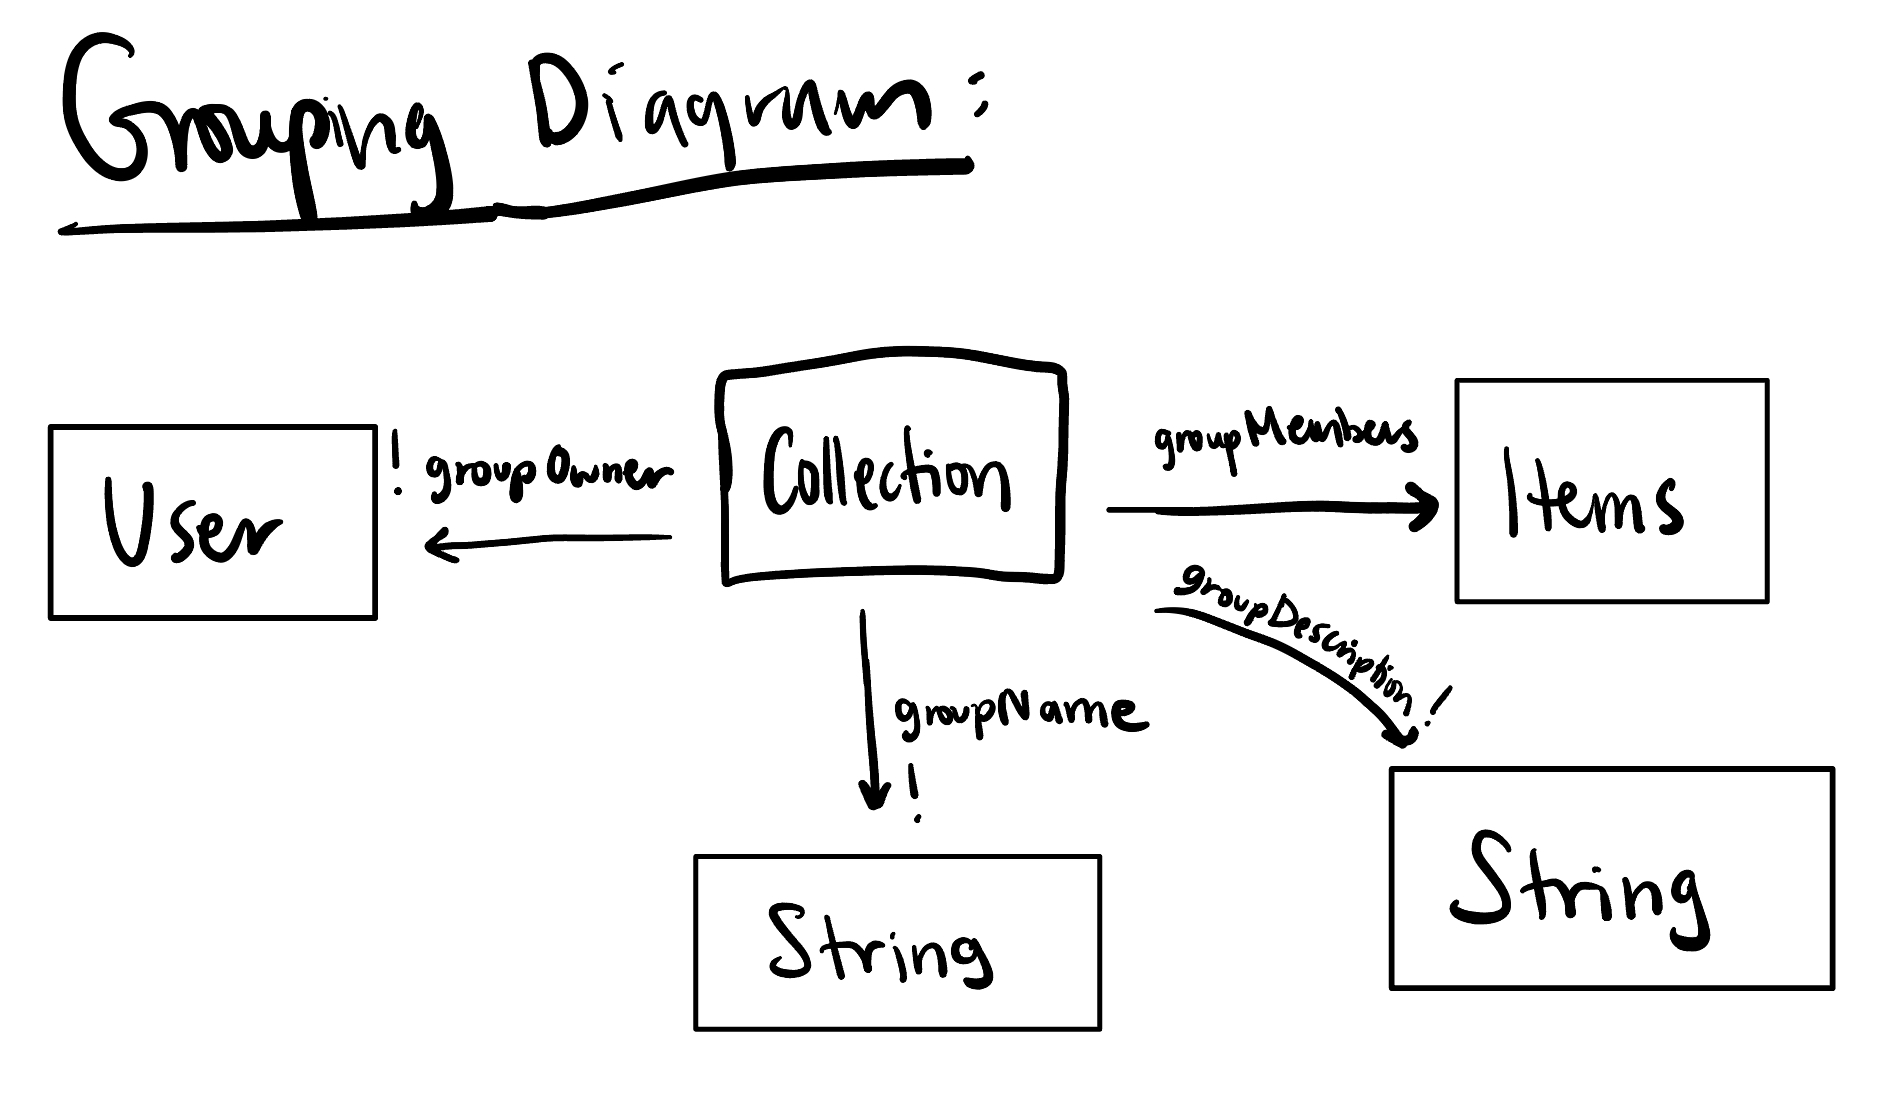 Grouping Diagram:
User
! groupOwner
Collection
groupMembers
Items
groupDescription!
groupName
!
String
String